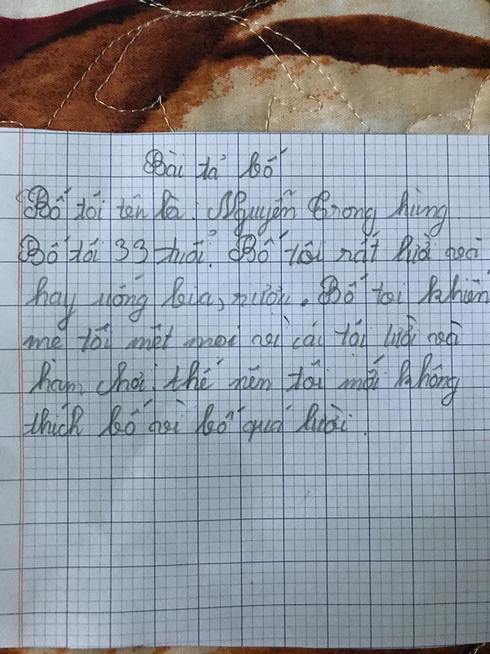 Bài tả bố
Bố tôi tên là: Nguyễn Trọng hùng
Bố tôi 33 tuổi. Bố tôi rất lười và
hay uống bia, rượu. Bố tôi khiến
mẹ tôi mệt mọi vì cái tối lười và
ham chơi, thế nên tôi mới không
thích bố vì bố quá lười.